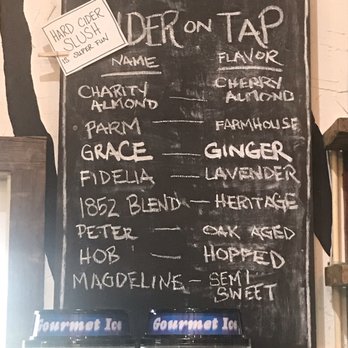 HARD CIDER
SLUSH
IS SUPER FUN
CIDER ON TAP
NAME FLAVOR
CHARITY ALMOND — CHERRY ALMOND
PARM — FARMHOUSE
GRACE — GINGER
FIDELIA — LAVENDER
1852 BLEND — HERITAGE
PETER — OAK AGED
HOB — HOPPED
MAGDELINE — SEMI SWEET
Gourmet Ice Gourmet Ic